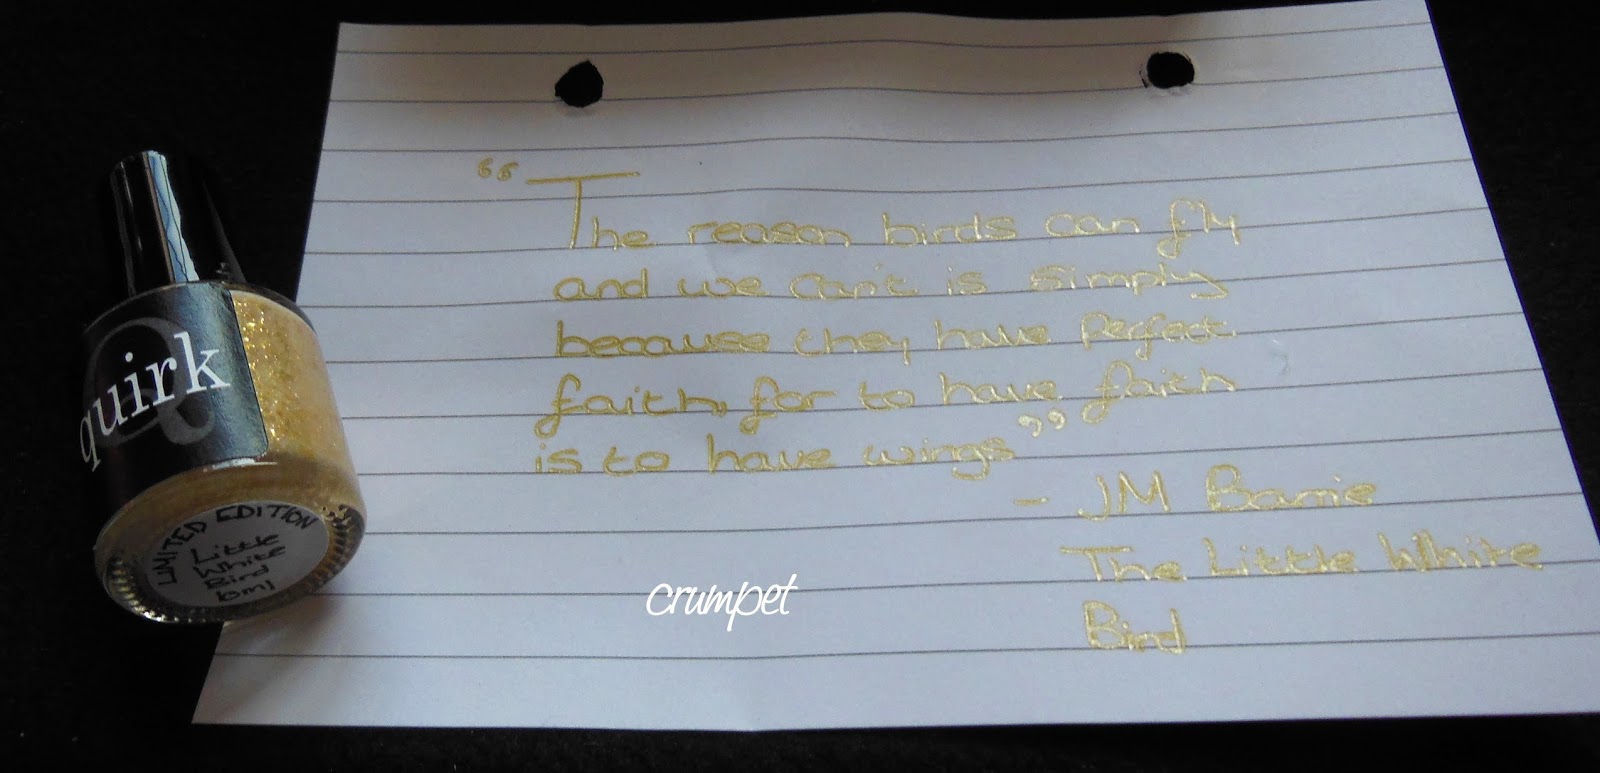 quirk
LIMITED EDITION
Little
White
Bird
10ml
“The reason birds can fly
and we can't is simply
because they have perfect
faith, for to have faith
is to have wings”
- JM Barrie
The Little White
Bird
crumpet